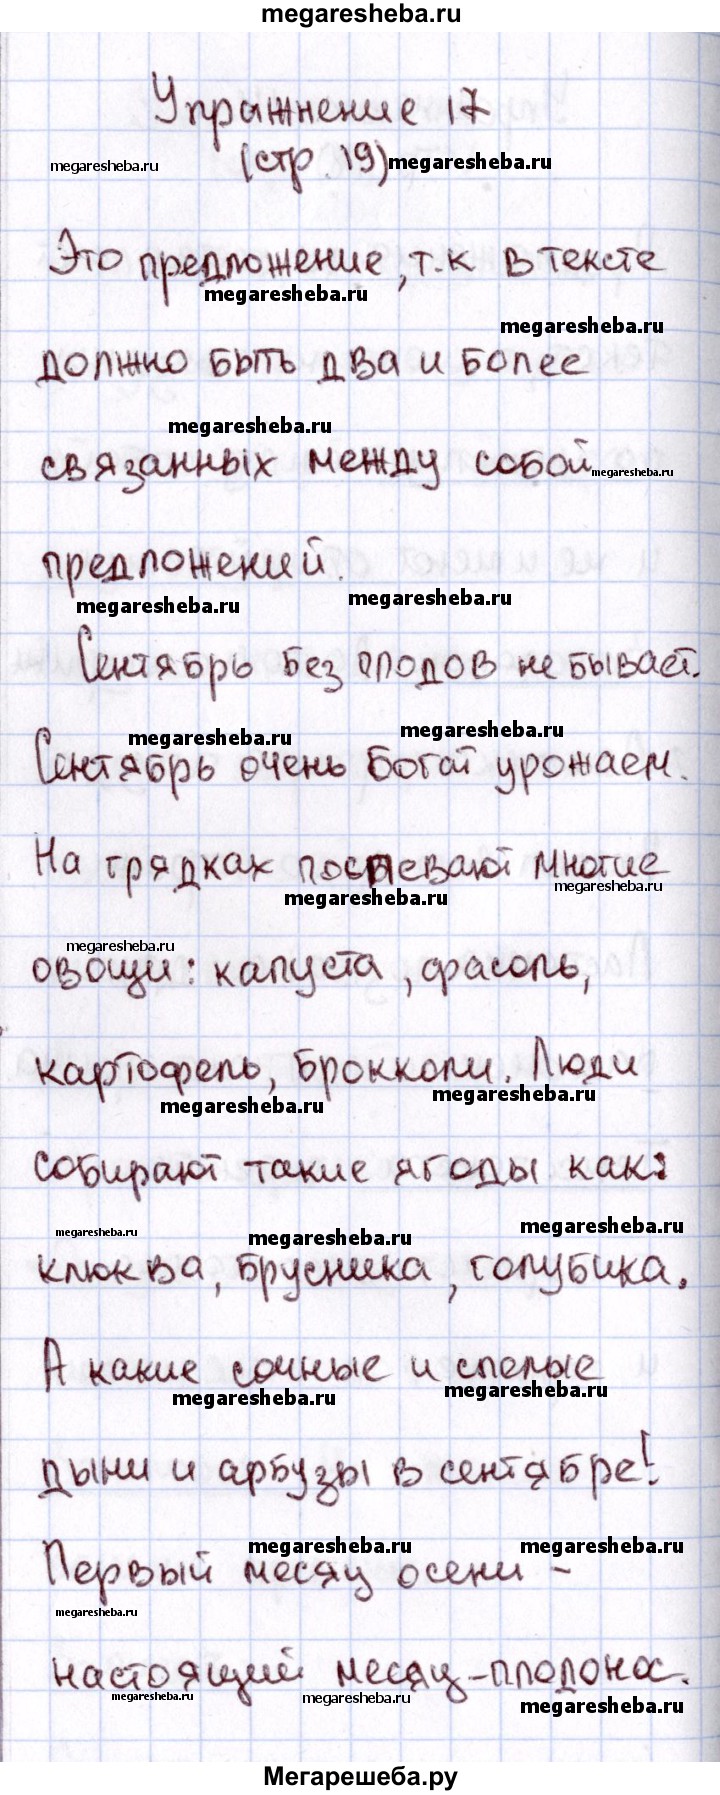 megaresheba.ru
Упражнение 17
megaresheba.ru
(стр. 19)
megaresheba.ru
Это предложение, т.к в тексте
megaresheba.ru
megaresheba.ru
должно быть два и более
megaresheba.ru
связанных между собой
megaresheba.ru
предложений.
megaresheba.ru
megaresheba.ru
Сентябрь без плодов не бывает.
megaresheba.ru
megaresheba.ru
Сентябрь очень богат урожаем.
На грядках поспевают многие
megaresheba.ru
megaresheba.ru
megaresheba.ru
овощи: капуста, фасоль,
картофель, брокколи. Люди
megaresheba.ru
megaresheba.ru
собирают такие ягоды как:
megaresheba.ru
megaresheba.ru
megaresheba.ru
клюква, брусника, голубика.
А какие сочные и спелые
megaresheba.ru
megaresheba.ru
дыни и арбузы в сентябре!
megaresheba.ru
megaresheba.ru
Первый месяц осени -
megaresheba.ru
настоящий месяц-плодонос.
megaresheba.ru
megaresheba.ru
megaresheba.ru
Мегарешеба.ру